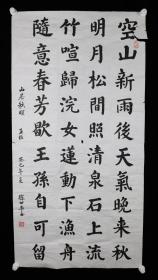 空山新雨後天氣晚來秋
明月松間照清泉石上流
竹喧歸浣女蓮動下漁舟
隨意春芳歇王孫自可留
山居秋暝 王維